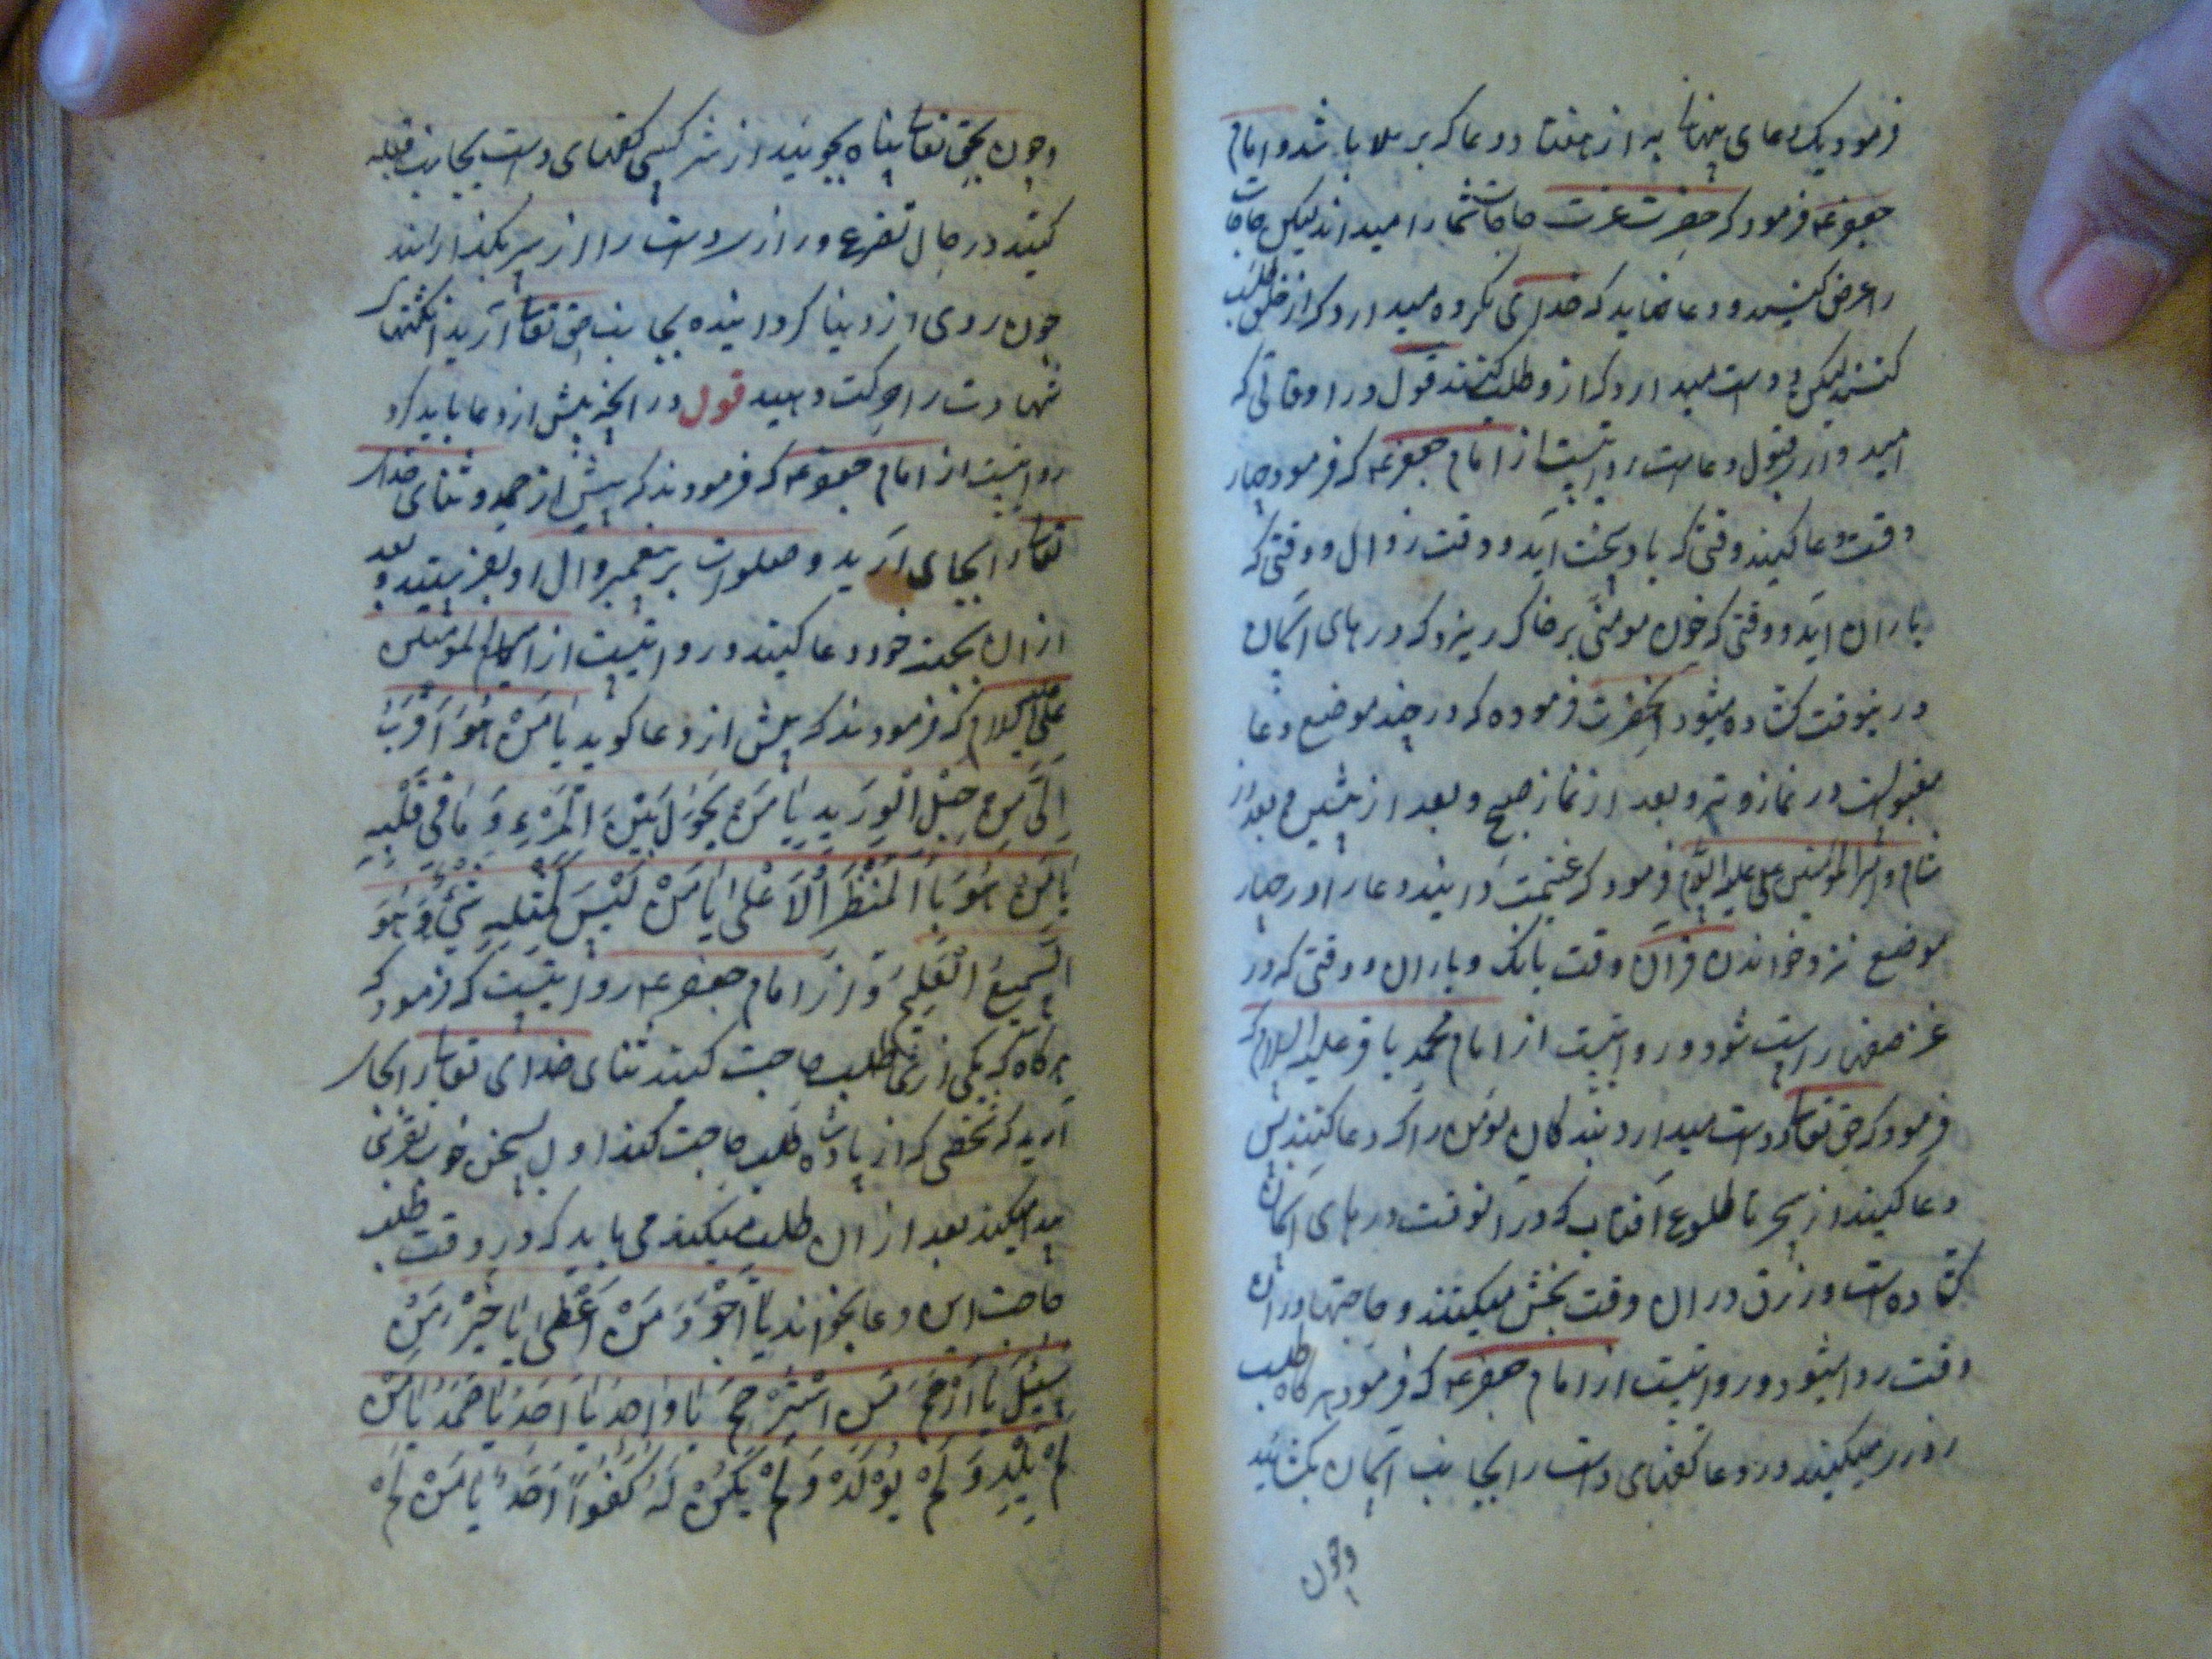 فرمود یک دعای پنهان به از هفتاد دعا که برملا باشد و امام
جعفر ع فرمود که حضرت عزت حاجات شما را میداند لیکن حاجات
را عرض کنید و دعا نماید که خدای مکروه میدارد که از خلق طلب
کنند لیکن دوست میدارد که ازو طلب کنند قول در اوقاتی که
امید وار قبول دعاست روایتست از امام جعفر ع که فرمود چهار
وقت دعا کنید وقتی که باد بجهد آید و وقت زوال و وقتی که
باران آید و وقتی که خون مومنی بر خاک ریزد که درهای آسمان
درینوقت کشاده میشود آنحضرت فرموده که در چند موضع دعا
مقبولست در نماز وتر و بعد از نماز صبح و بعد از پیشین و بعد از
شام و امیرالمومنین علی علیه السلام فرمود که غنیمت دانید دعا را در چهار
موضع نزد خواندن قرآن وقت بانک و باران و وقتی که در
غزا صفها راست شود و روایتست از امام محمد باقر علیه السلام که
فرمود که حق تعالی دوست میدارد بندکان مومن را که دعا کنند پس
دعا کنید از سحر تا طلوع آفتاب که در آنوقت درهای آسمان
کشاده است و رزق در آن وقت بخش میکنند و حاجتها در آن
وقت روا میشود و روایتست از امام جعفر ع که فرمود هرکاه طلب
روزی میکنید در دعا کفهای دست را بجانب آسمان بکشائید
وچون
وچون بحق تعالی پناه بجوئید از شر کسی کفهای دست بجانب قبله
کنید در حال تضرع و راز سر دست را از سر بکذرانند
چون روی از دنیا کردانیده بجانب حق تعالی آرید انکشتهای
شهادت را حرکت دهید قول در آنچه پیش از دعا باید کرد
روایتست از امام جعفر ع که فرمودند که پیش از حمد و ثنای خدای
تعالی را بجای آرید و صلوات بر پیغمبر و آل او بفرستید و بعد
از آن بجهة خود دعا کنید و روایتست از امیرالمومنین
علی علیه السلام که فرمودند که پیش از دعا کوید یَا مَنْ هُوَ اَقْرَبُ
اِلَیَّ مِنْ حَبْلِ الْوَرِیدِ یَا مَنْ یَحُولُ بَیْنَ الْمَرْءِ وَ مَا فِی قَلْبِهِ
یَا مَنْ هُوَ بِالْمَنْظَرِ الْاَعْلٰی یَا مَنْ لَیْسَ کَمِثْلِهِ شَیْءٌ وَ هُوَ
السَّمِیعُ الْعَلِیمُ و از امام جعفر ع روایتست که فرمود که
هرکاه که یکی از شما طلب حاجت کنید ثنای خدای تعالی را بجای
آرید که شخصی که از پادشاه طلب حاجت کند اول سخن خوب تعریفی
پیدا میکند بعد از آن طلب میکند می باید که در وقت طلب
حاجت این دعا بخوانند یَا اَجْوَدَ مَنْ اَعْطٰی یَا خَیْرَ مَنْ
سُئِلَ یَا اَرْحَمَ مَنِ اسْتُرْحِمَ یَا وَاحِدُ یَا اَحَدُ یَا صَمَدُ یَا مَنْ
لَمْ یَلِدْ وَ لَمْ یُوْلَدْ وَ لَمْ یَکُنْ لَهُ کُفُواً اَحَدٌ یَا مَنْ لَمْ